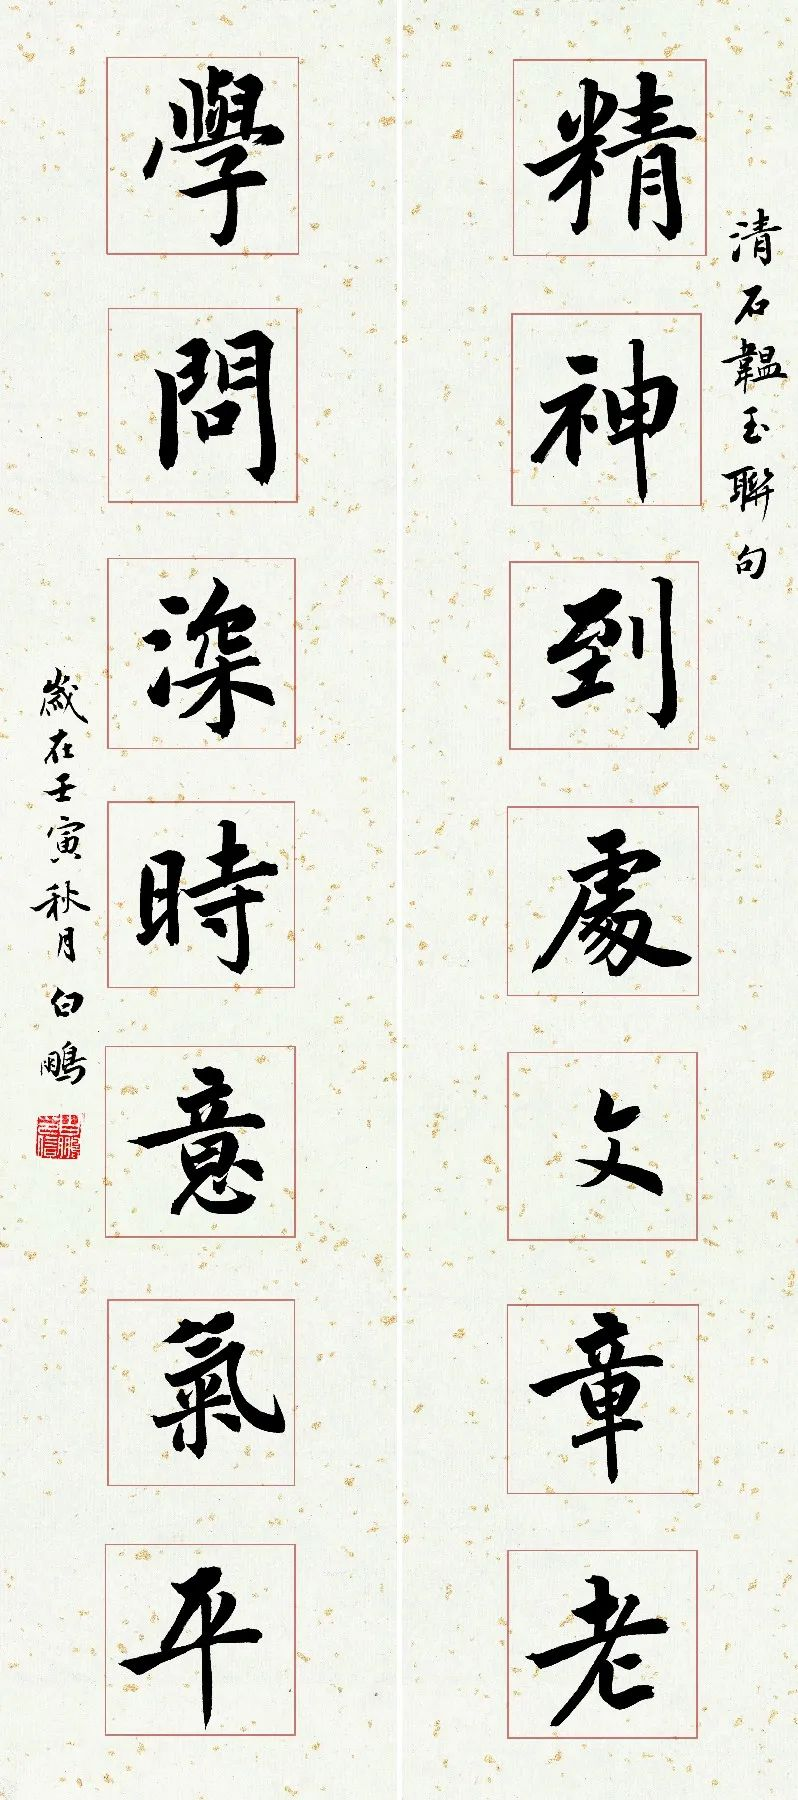 清石韞玉聯句
精神到處文章老
學問深時意氣平
歲在壬寅秋月白鵬